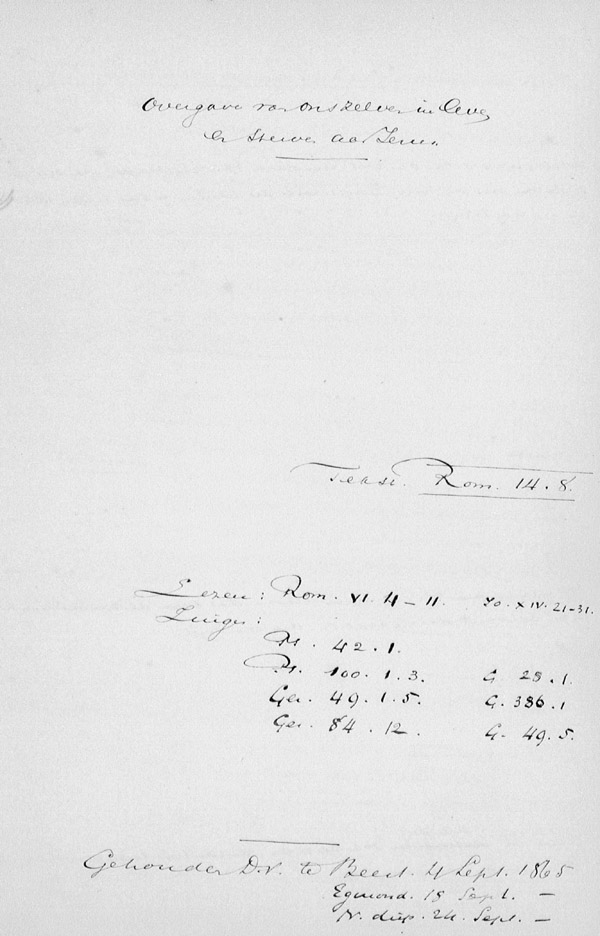 Overgave van ons zelve in leve
en sterve aan Jezus.
Tekst. Rom. 14. 8.
Lezen: Rom. VI. 4 – 11. Jo. XIV. 21-31.
Zingen:
Ps. 42. 1.
Ps. 100. 1. 3. G. 28. 1.
Gez. 49. 1. 5. G. 386. 1
Gez. 84. 12. G. 49. 5.
Gehouden D.V. te Beest. 4 Sept. 1865
Egmond. 18 Sept. –
N. diep. 24. Sept. –